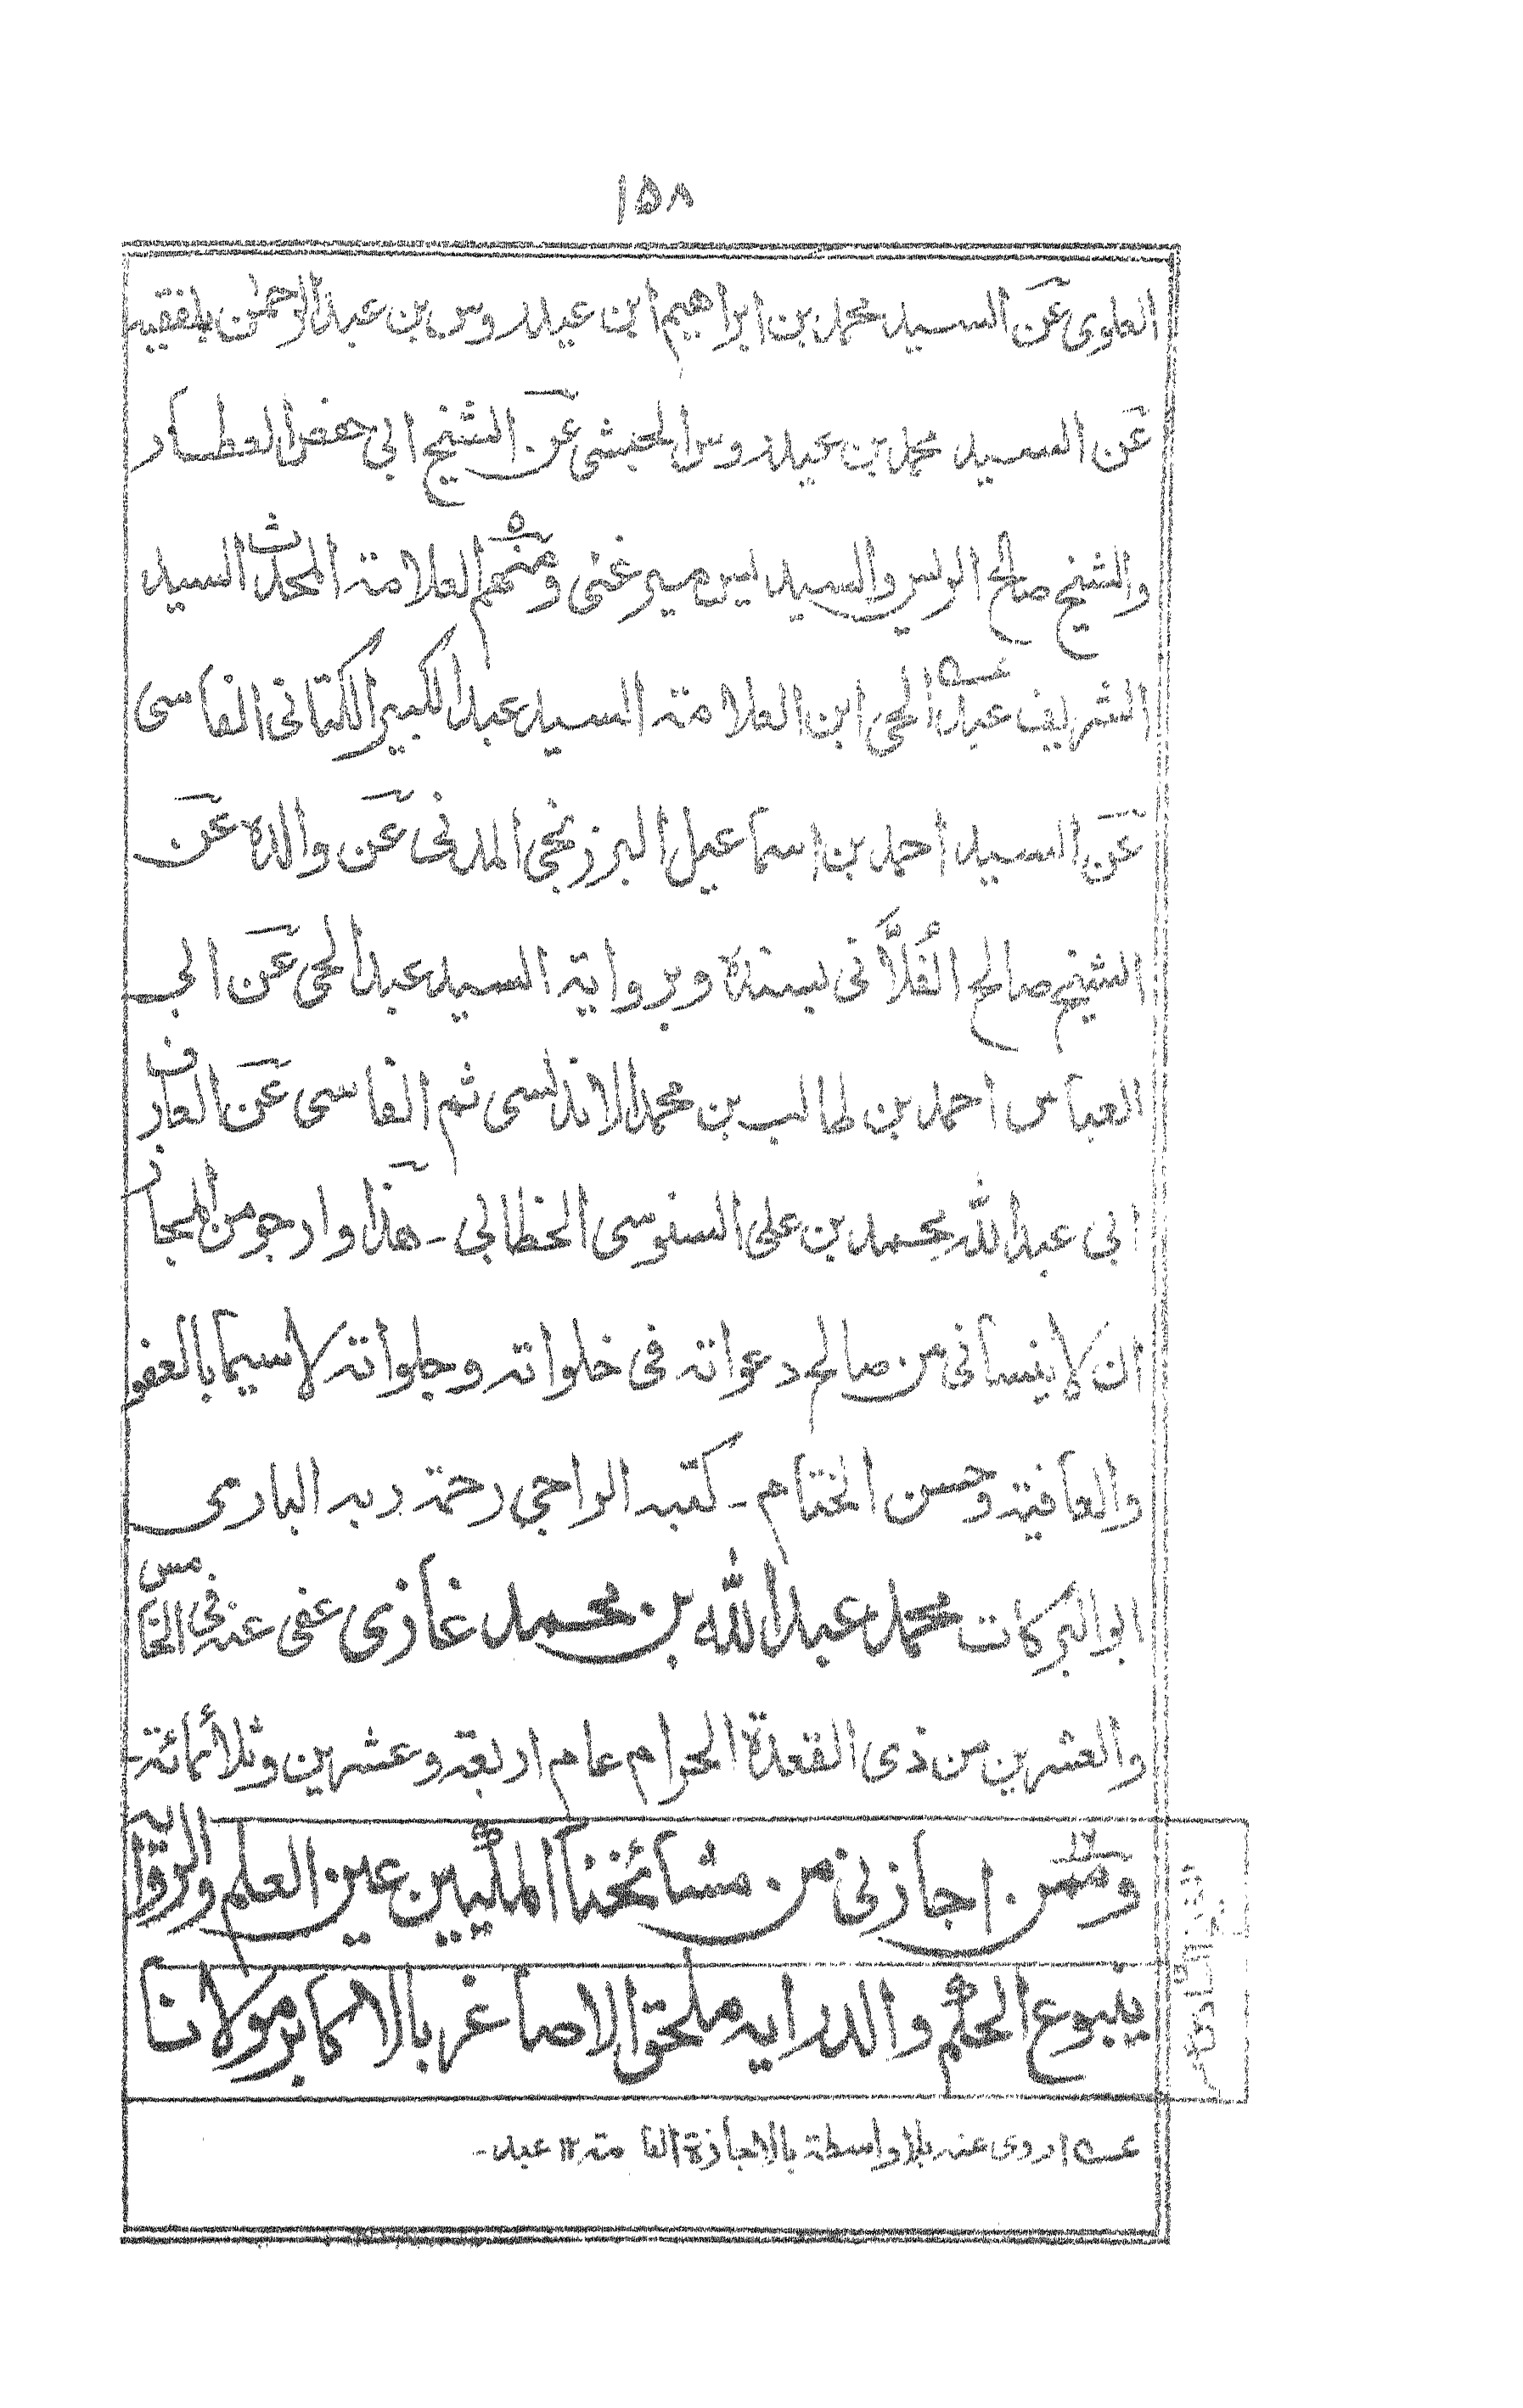 ١٥٨
العلوی عن السيد محمد بن ابراهيم ابن عيدروس بن عبد الرحمٰن بلفقيه
عن السيد محمد بن عيدروس الحبشی عن الشيخ ابی حفص العطار
والشيخ صالح الريس والسيد ليس ميرغنی ومنهم العلامة المحدث السيد
الشريف عبد الحی ابن العلامة السيد عبد الكبير الكتانی الفاسی
عن السيد احمد بن اسماعيل البرزنجی المدنی عن والده عن
الشيخ صالح الفُلَّانی بسندہ وبرواية السيد عبد الحی عن ابی
العباس احمد بن طالب بن محمد الاندلسی ثم الفاسی عن العارف
ابی عبد الله محمد بن علی السنوسی الخطابی ۔ هذا وارجو من المجاز
ان لا ينسانی من صالح دعواته فی خلواته وجلواته لا سيما بالعفو
والعافية وحسن الختام ۔ كتبه الراجی رحمة ربه الباری
ابو البركات محمد عبد الله بن محمد غازی عفی عنه فی الخامس
والعشرين من ذی القعدة الحرام عام اربعة وعشرين وثلاثمائة ۔
وممن اجازنی من مشائخنا المكيين عين العلم والرواية
ينبوع الحكم والدراية ملحق الاصاغر بالاكابر مولانا
عہ اروی عنه بلا واسطة بالاجازة العامة ١٢ عبد ۔